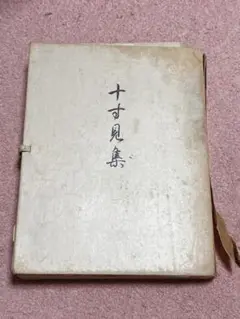 十寸見集